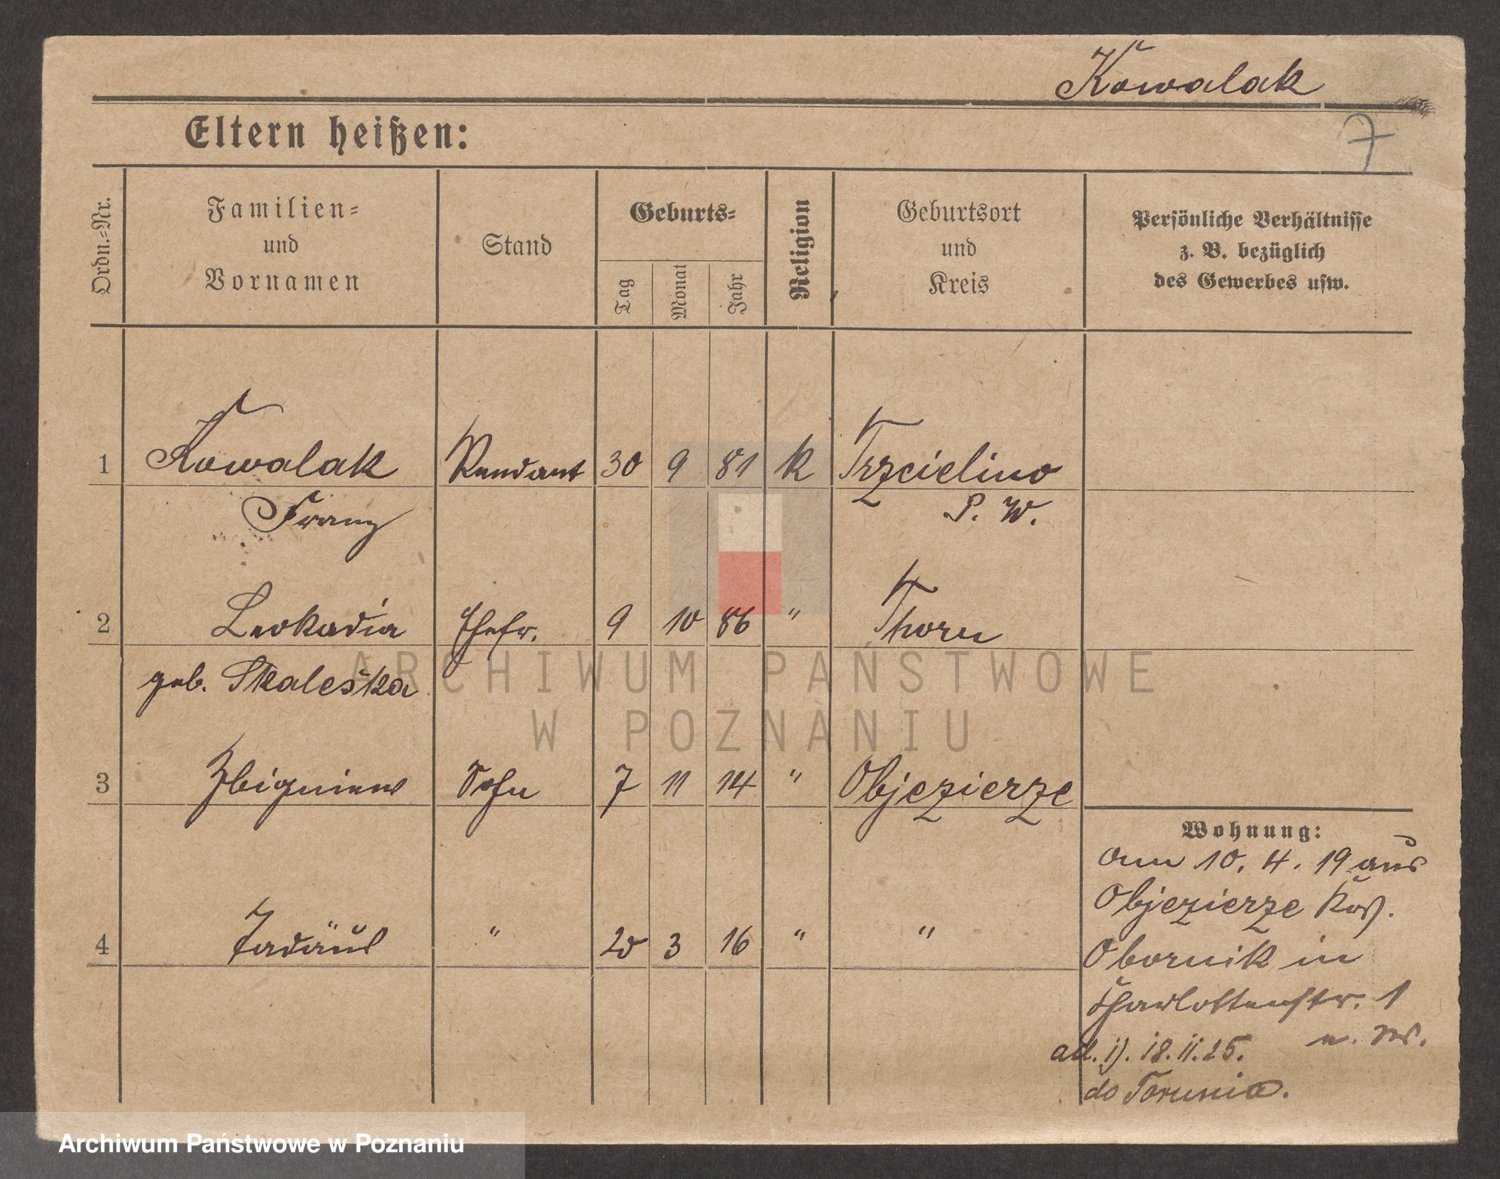 Kowalak
7
Eltern heißen:
Ordn.=Nr.
Familien=
und
Vornamen
Stand
Geburts=
Tag
Monat
Jahr
Religion
Geburtsort
und
Kreis
Persönliche Verhältnisse
z. B. bezüglich
des Gewerbes usw.
1 Kowalak Rendant 30 9 81 k Trzcielino
Franz P. W.
2 Leokadia Ehefr. 9 10 86 " Thorn
geb. Skaleska
3 Zbigniew Sohn 7 11 14 " Objezierze
Wohnung:
am 10. 4. 19 aus
Objezierze Krs.
4 Tadäus " 20 3 16 " "
Obornik in
Charlottenstr. 1
ad. 1). 18.11.25.
do Torunia.
ARCHIWUM PAŃSTWOWE
W POZNANIU
Archiwum Państwowe w Poznaniu